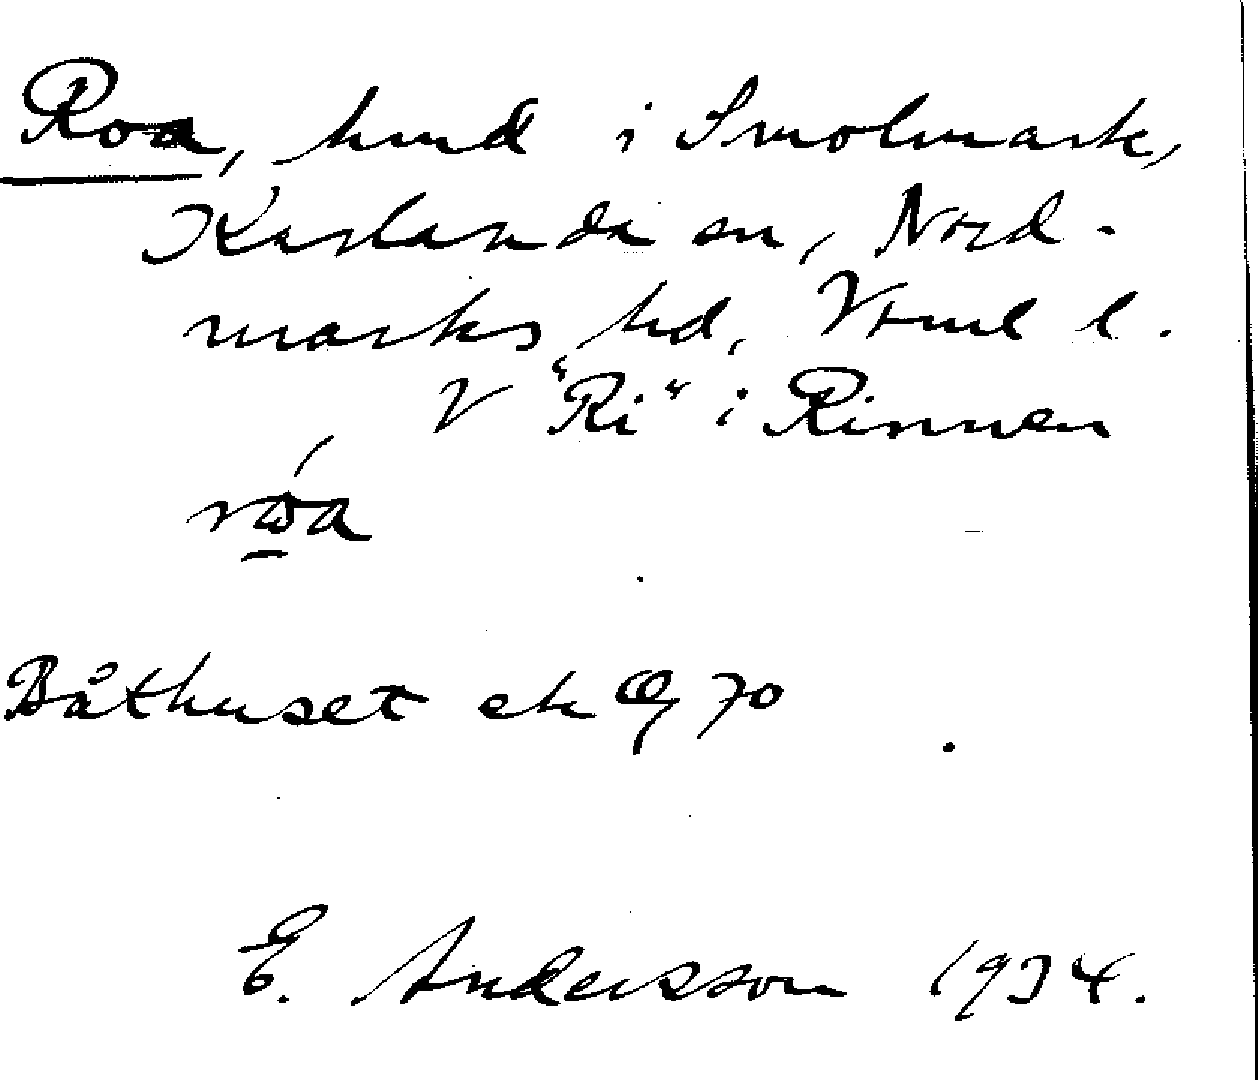 Roa, hmd i Smolmark,
Karlanda sn, Nord-
marks hd, Vrml l.
V "Ri" i Rinnen
Båthuset ek Q 70
E. Andersson 1934.